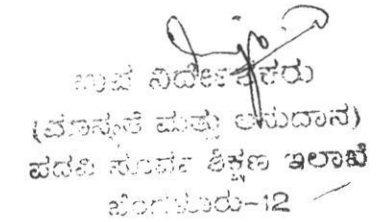 ಉಪ ನಿರ್ದೇಶಕರು
(ಮಾನ್ಯತೆ ಮತ್ತು ಅನುದಾನ)
ಪದವಿ ಪೂರ್ವ ಶಿಕ್ಷಣ ಇಲಾಖೆ
ಬೆಂಗಳೂರು-12